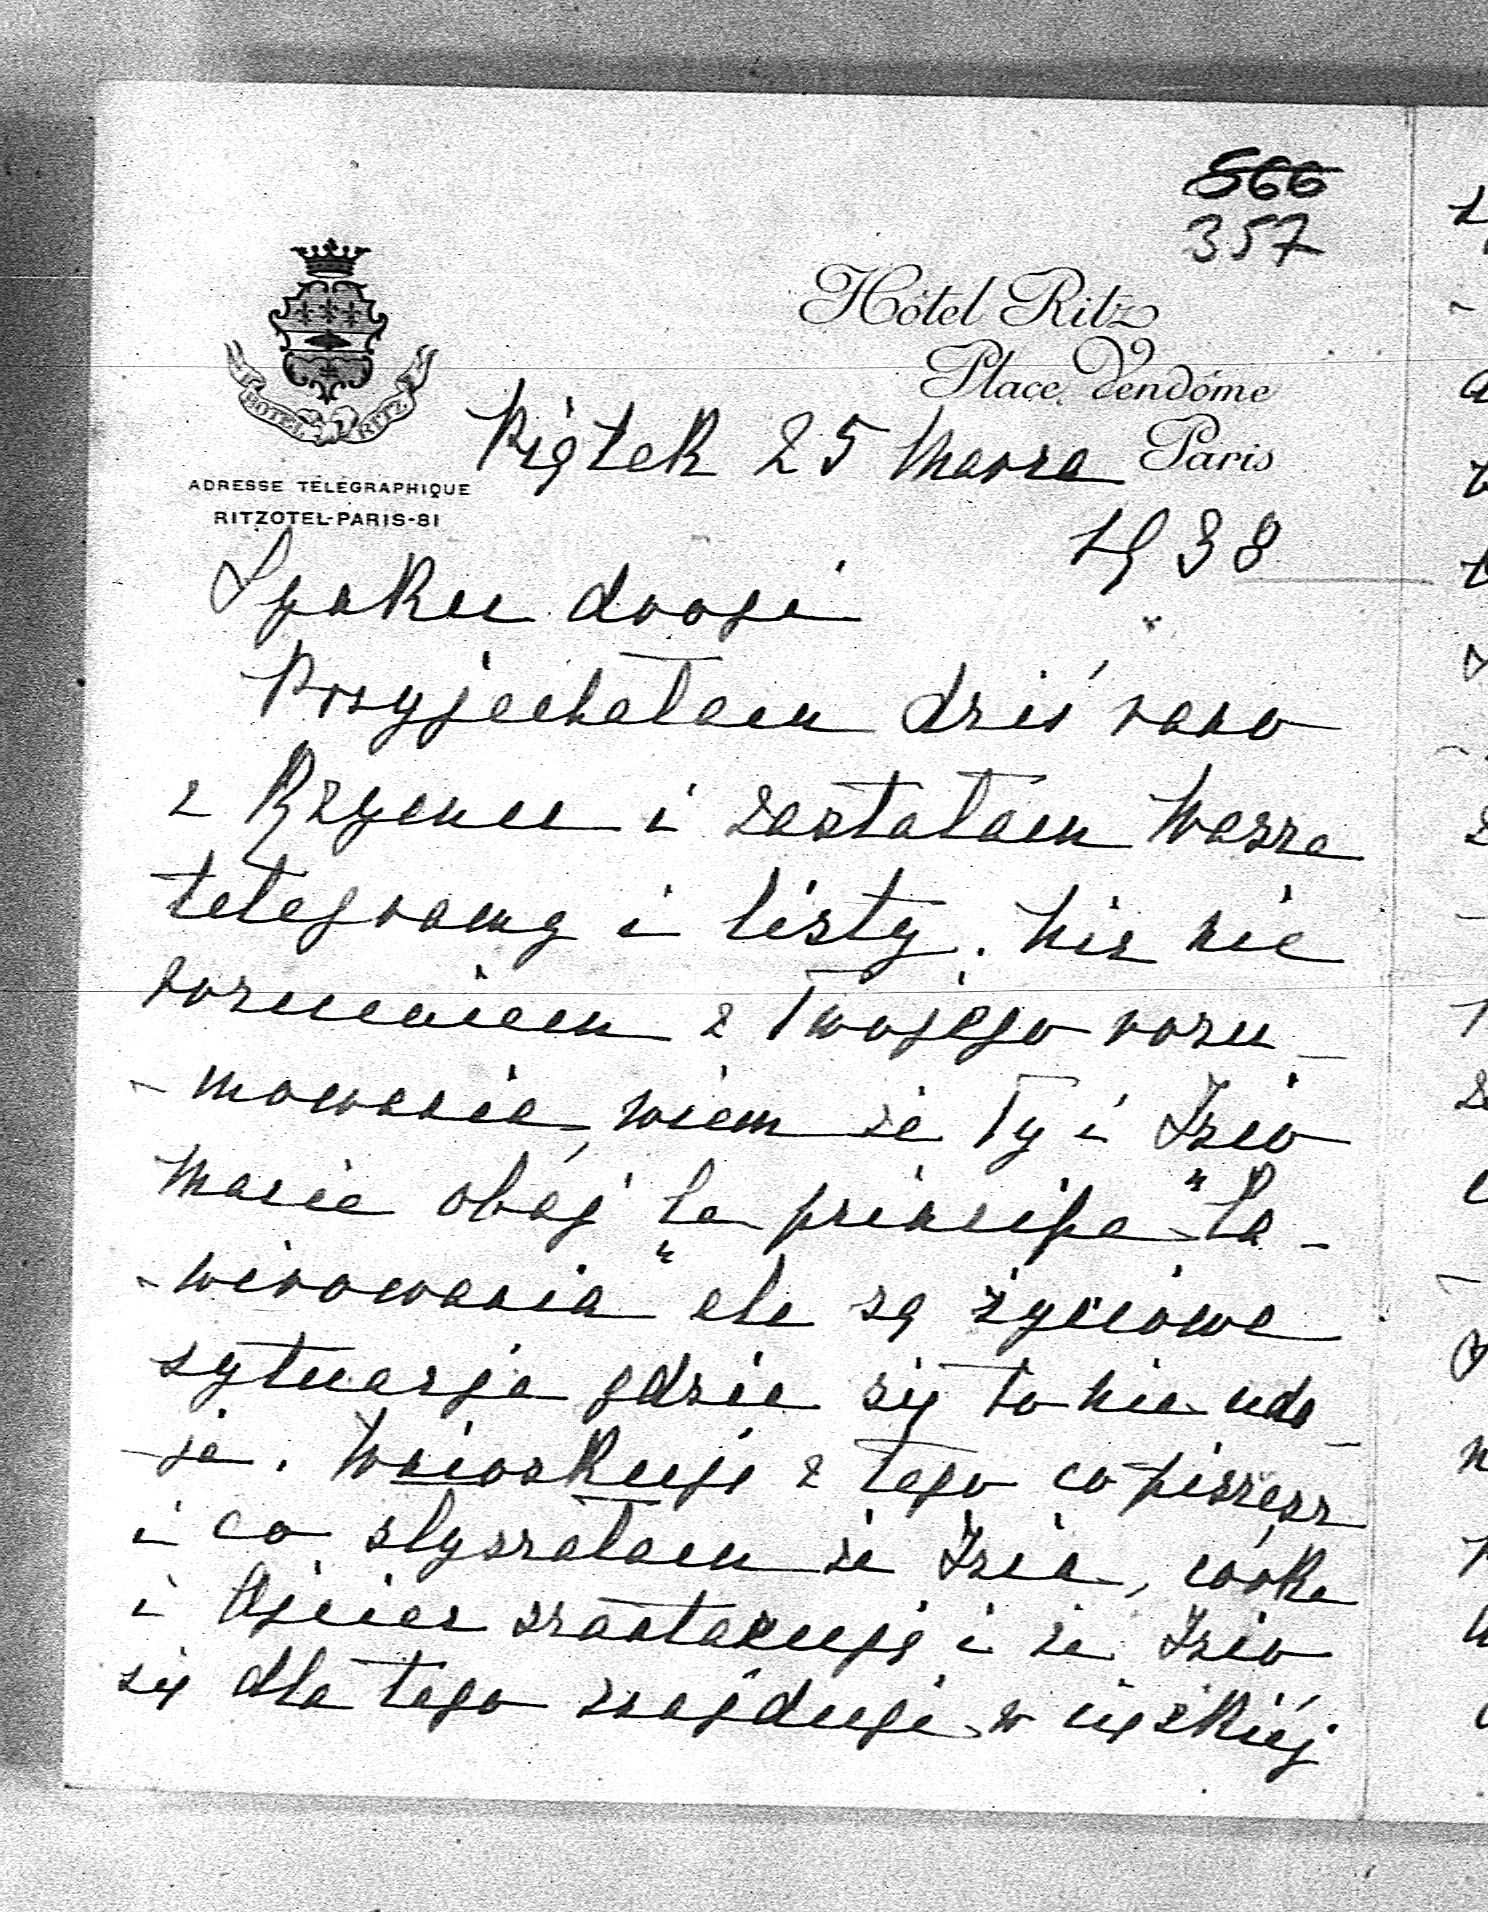 566
357
Hôtel Ritz
Place Vendôme
Paris
HOTEL RITZ
ADRESSE TÉLÉGRAPHIQUE
RITZOTEL-PARIS-81
Piątek 25 Marca
1938
Synku drogi
Przyjechałam dziś rano
z Rzymu i zastałam Wasze
telegramy i listy. Nic nie
rozumiem z Twojego rozu-
-mowania, wiem że Ty i Izio
macie obaj tę principe "la-
-wirowania" ale są życiowe
sytuacje gdzie się to nie uda-
-je. Wnioskuję z tego co piszesz
i co słyszałam że Izia, córka
i Ojciec szantażują i że Izio
się dla tego znajduje w ciężkiej